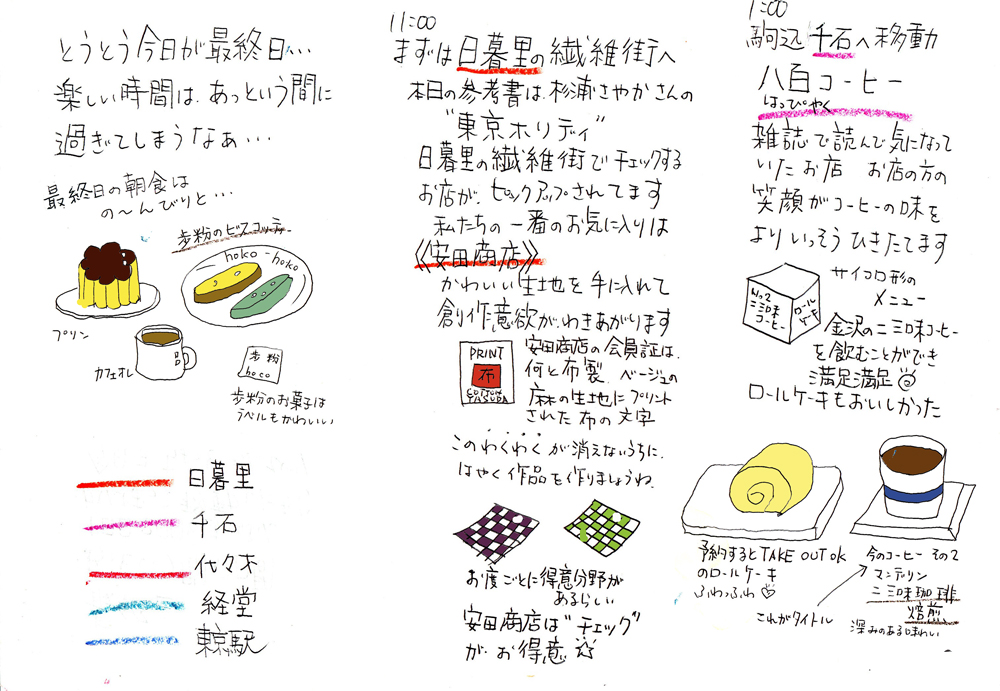 とうとう今日が最終日…
楽しい時間は、あっという間に
過ぎてしまうなぁ…
最終日の朝食は
の〜んびりと…
歩粉のビスコッティ
hoko-hoko
プリン
カフェオレ
歩粉
hoco
歩粉のお菓子は
ラベルもかわいい
日暮里
千石
代々木
経堂
東京駅
11:00
まずは日暮里の繊維街へ
本日の参考書は、杉浦さやかさんの
"東京ホリデイ"
日暮里の繊維街でチェックする
お店が、ピックアップされてます
私たちの一番のお気に入りは
《安田商店》
かわいい生地を手に入れて
創作意欲が、わきあがります
PRINT
布
COTTON
YASUDA
安田商店の会員証は、
何と布製。ベージュの
麻の生地にプリント
された布の文字
このわくわくが消えないうちに、
はやく作品を作りましょうね。
お店ごとに得意分野が
あるらしい
安田商店は"チェック"
が、お得意☆
1:00
駒込 千石へ移動
八百コーヒー
はっぴゃく
雑誌で読んで気になって
いたお店 お店の方の
笑顔がコーヒーの味を
よりいっそうひきたてます
サイコロ形の
メニュー
No.2
二三味
コーヒー
ロール
ケーキ
金沢の二三味コーヒー
を飲むことができ
満足満足
ロールケーキもおいしかった
予約するとTAKE OUT OK
のロールケーキ
ふわっふわ♡
今のコーヒー その2
マンデリン
二三味珈琲
焙煎
深みのある味わい
これがタイトル